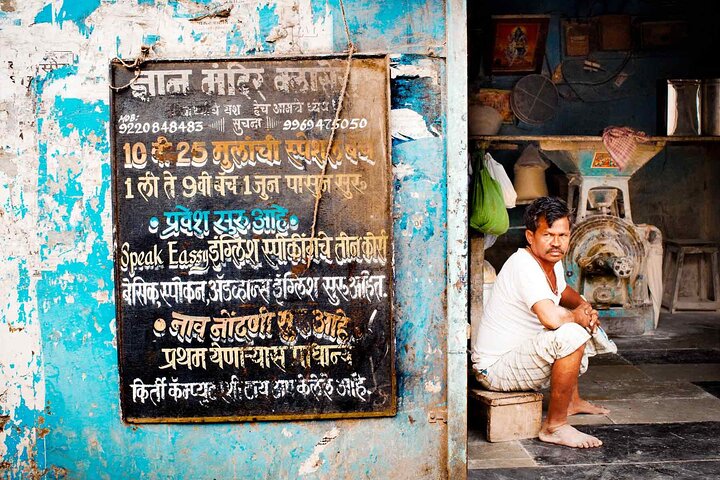 ज्ञान मंदिर क्लासेस
यश हेच आमचे ध्येय
9220848483 || सुचना || 9969475050
10 वी 25 मुलांची स्पेशल बॅच
1 ली ते 9 वी बॅच 1 जुन पासुन सुरु
प्रवेश सुरु आहे
Speak Eassy इंग्लिश स्पीकींगचे तीन कोर्स
बेसिक, स्पीकन, अॅडव्हान्स इंग्लिश सुरु आहेत.
नाव नोंदणी सुरु आहे
प्रथम येणाऱ्यास प्राधान्य
किर्ती कॅम्प्यु